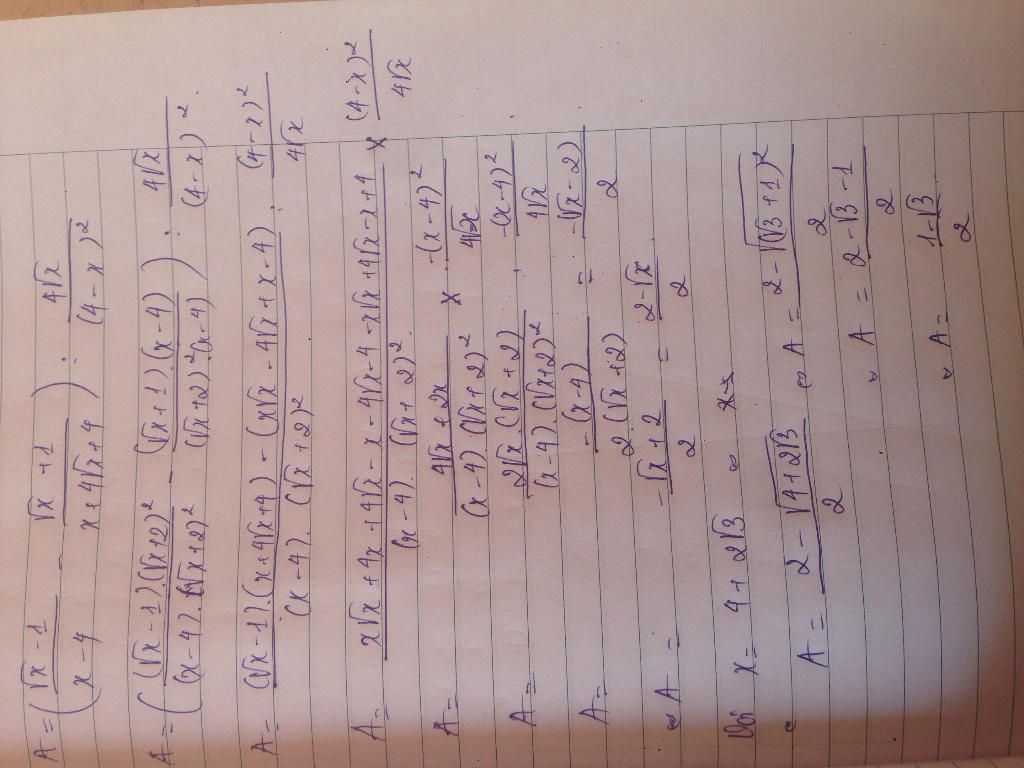 A = ( (√x - 1)/(x - 4) - (√x + 1)/(x + 4√x + 4) ) : 4√x/(4 - x)²
A = ( (√x - 1).(√x + 2)²/(x - 4).(√x + 2)² - (√x + 1).(x - 4)/(√x + 2)².(x - 4) ) : 4√x/(4 - x)².
A = ((√x - 1).(x + 4√x + 4) - (x√x - 4√x + x - 4))/((x - 4).(√x + 2)²) . (4 - x)²/4√x
A = (x√x + 4x + 4√x - x - 4√x - 4 - x√x + 4√x - x + 4)/((x - 4).(√x + 2)²) × (4 - x)²/4√x
A = (4√x + 2x)/((x - 4).(√x + 2)²) × -(x - 4)²/4√x
A = 2√x.(√x + 2)/((x - 4).(√x + 2)²) . -(x - 4)²/4√x
A = -(x - 4)/(2.(√x + 2)) = -(√x - 2)/2
A = (-√x + 2)/2 = (2 - √x)/2
Với x = 4 + 2√3
A = (2 - √(4 + 2√3))/2 A = (2 - √(√3 + 1)²)/2
A = (2 - √3 - 1)/2
A = (1 - √3)/2